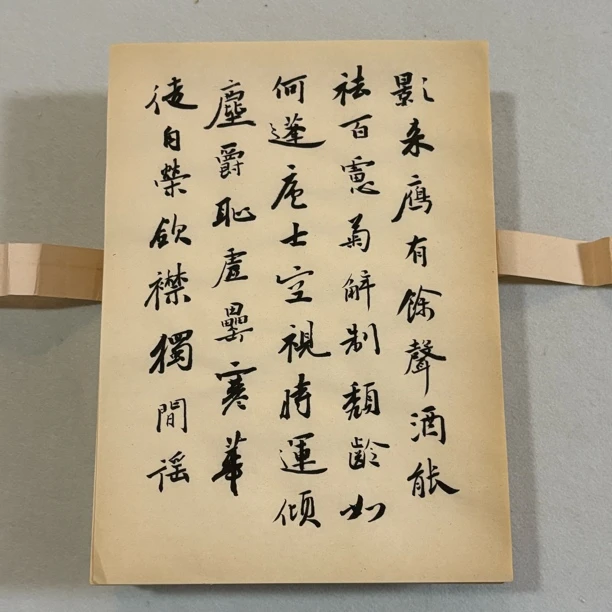 影来鴈有餘聲酒能
祛百慮菊解制頹齡如
何蓬庐士空視時運傾
塵爵恥虛罍寒華
徒自榮斂襟獨閒謡